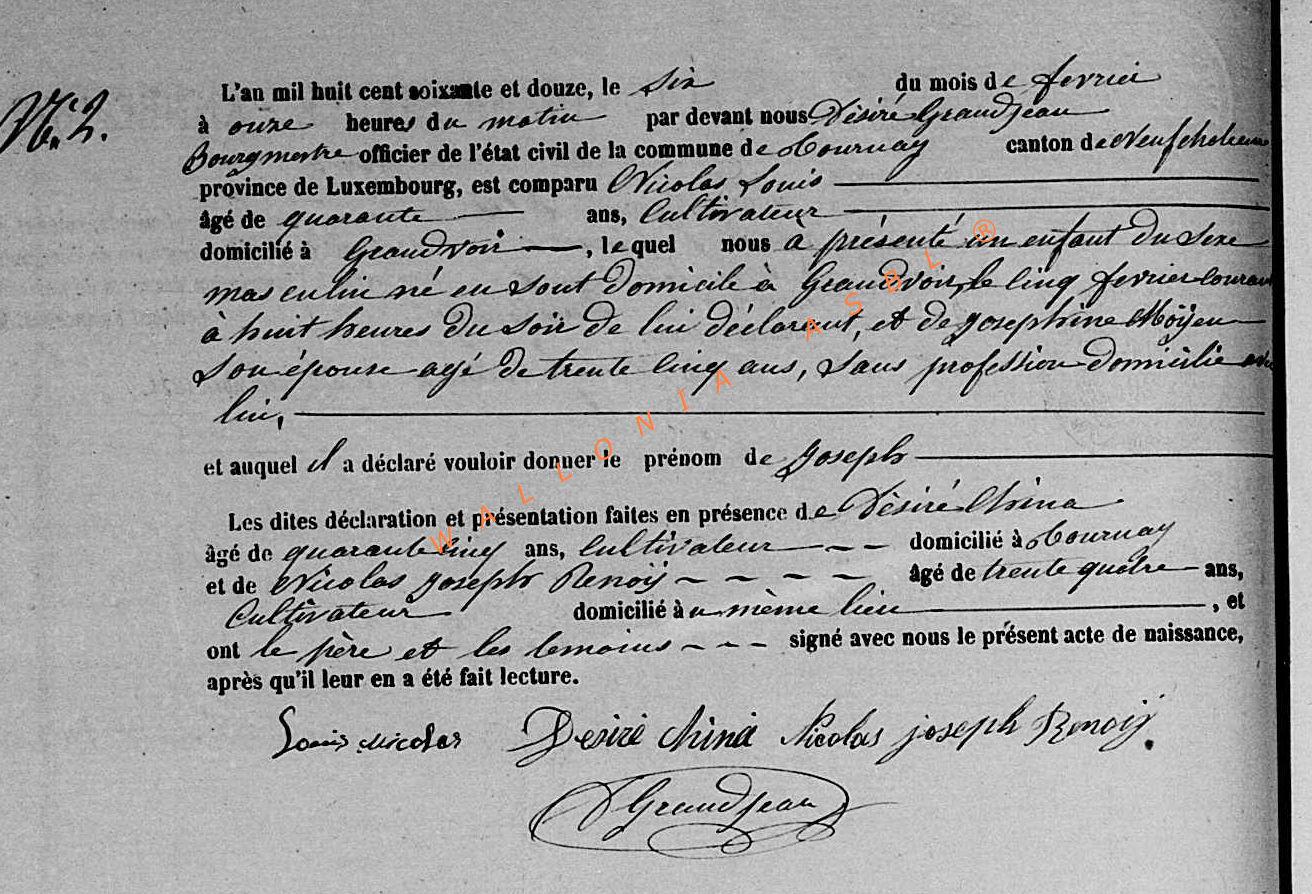 N° 2.
L'an mil huit cent soixante et douze, le six du mois de fevrier
à onze heures du matin par devant nous Désiré Grandjean
Bourgmestre officier de l'état civil de la commune de Tournay canton de Neufchateau
province de Luxembourg, est comparu Nicolas Louis
âgé de quarante ans, Cultivateur
domicilié à Grandvoir, lequel nous à présenté un enfant du sexe
masculin né en sont domicile à Grandvoir, le cinq fevrier courant
à huit heures du soir de lui déclarant, et de Josephine Moÿen
son épouse agé de trente cinq ans, sans profession domicilie avec
lui,
et auquel il a déclaré vouloir donner le prénom de Joseph
Les dites déclaration et présentation faites en présence de Désiré China
âgé de quarante cinq ans, Cultivateur domicilié à Tournay
et de Nicolas Joseph Renoÿ âgé de trente quatre ans,
Cultivateur domicilié au même lieu, et
ont le père et les temoins signé avec nous le présent acte de naissance,
après qu'il leur en a été fait lecture.
Louis Nicolas Desiré China Nicolas joseph Renoÿ.
D Grandjean
WALLONIA ASBL ®